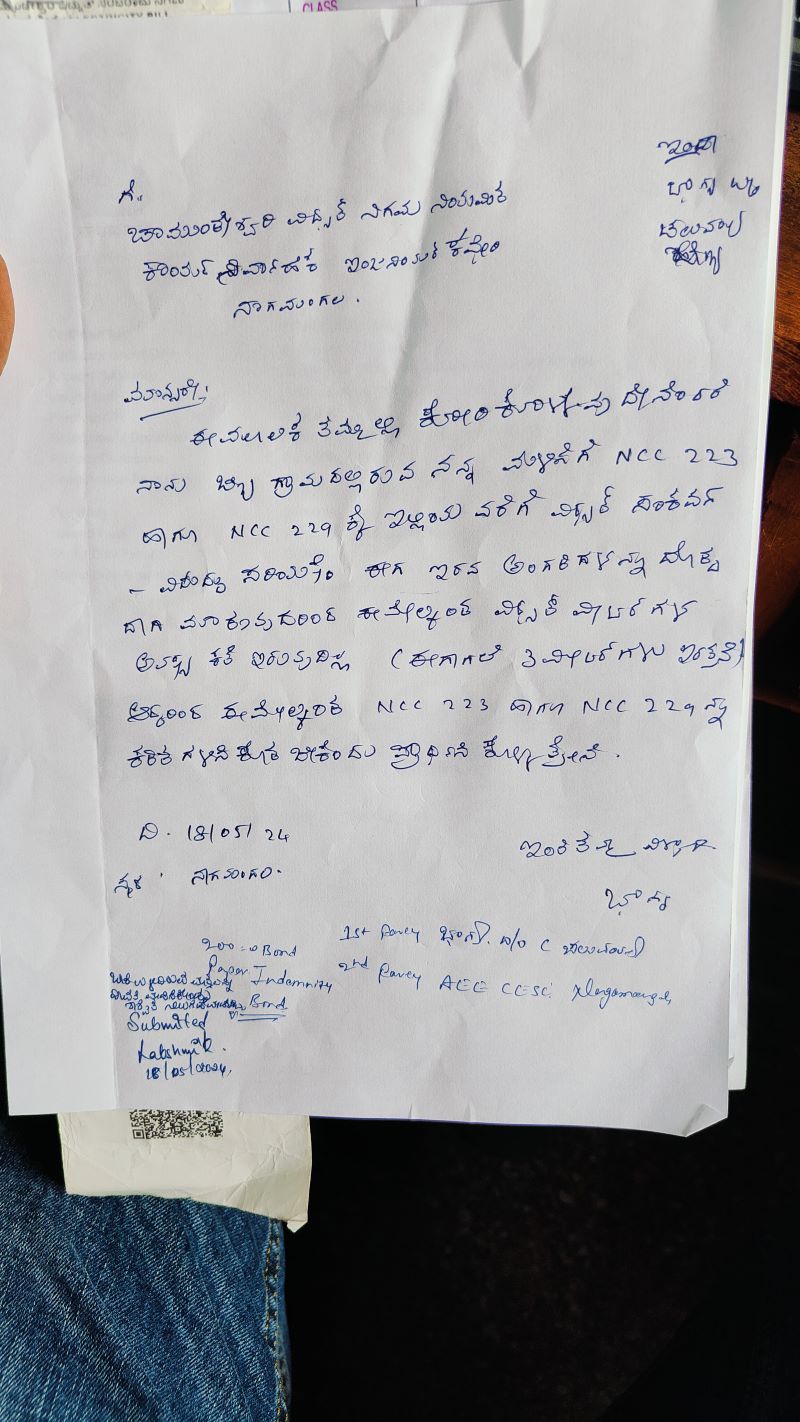 CLASS
ಇಂದ
ಭಾಗ್ಯ
ಚಲುವಯ್ಯ
ಗೆ..
ಚಾಮುಂಡೇಶ್ವರಿ ವಿದ್ಯುತ್ ನಿಗಮ ನಿಯಮಿತ
ಕಾರ್ಯ ನಿರ್ವಾಹಕ ಇಂಜಿನಿಯರ್ ಕಛೇರಿ
ನಾಗಮಂಗಲ.
ಮಾನ್ಯರೇ,
ಈ ಮೂಲಕ ತಮ್ಮಲ್ಲಿ ಕೋರಿಕೊಳ್ಳುವುದೇನೆಂದರೆ
ನಾನು ಗ್ರಾಮದಲ್ಲಿರುವ ನನ್ನ ಮಳಿಗೆಗೆ NCC 223
ಹಾಗೂ NCC 229 ಕ್ಕೆ ಇಲ್ಲಿಯ ವರೆಗೆ ವಿದ್ಯುತ್ ಸಂಪರ್ಕ
ಸರಿಯಷ್ಟೇ ಈಗ ಇರುವ ಅಂಗಡಿಗಳನ್ನು ದೊಡ್ಡ
ದಾಗಿ ಮಾಡುವುದರಿಂದ ಈ ಮೇಲ್ಕಂಡ ವಿದ್ಯುತ್ ಮೀಟರ್ ಗಳ
ಅವಶ್ಯಕತೆ ಇರುವುದಿಲ್ಲ (ಈಗಾಗಲೆ 3 ಮೀಟರ್ ಗಳು ಇರುತ್ತವೆ)
ಆದ್ದರಿಂದ ಈ ಮೇಲ್ಕಂಡ NCC 223 ಹಾಗೂ NCC 229 ನ್ನು
ಕಡಿತಗೊಳಿಸಿ ಕೊಡ ಬೇಕೆಂದು ಪ್ರಾರ್ಥಿಸಿ ಕೊಳ್ಳುತ್ತೇನೆ.
ದಿ. 18/05/24
ಸ್ಥಳ . ನಾಗಮಂಗಲ.
ಇಂತಿ ತಮ್ಮ ವಿಶ್ವಾಸಿ
ಭಾಗ್ಯ
200=00 Bond
Paper Indemnity
Bond
1st Party ಭಾಗ್ಯ D/O C ಚಲುವಯ್ಯ
2nd Party AEE CESC Nagamangala
Submitted
Lakshmi R.
18/05/2024,